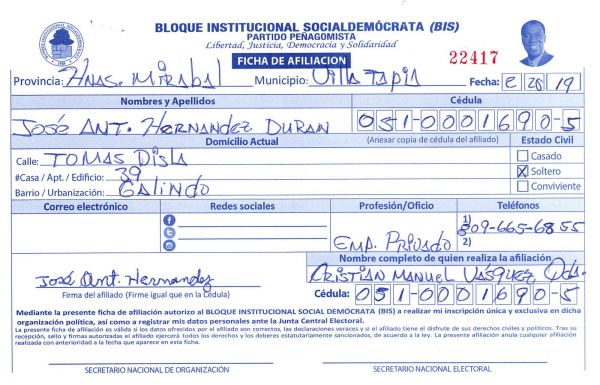 BLOQUE INSTITUCIONAL SOCIALDEMÓCRATA (BIS)
PARTIDO PEÑAGOMISTA
Libertad, Justicia, Democracia y Solidaridad
FICHA DE AFILIACIÓN
22417
Provincia: Hnas. Mirabal Municipio: Villa Tapia Fecha: 2 20 19
Nombres y Apellidos Cédula
José Ant. Hernandez Duran 051-0001690-5
Domicilio Actual (Anexar copia de cédula del afiliado) Estado Civil
Calle: Tomas Disla Casado
#Casa / Apt. / Edificio: 39 X Soltero
Barrio / Urbanización: Galindo Conviviente
Correo electrónico Redes sociales Profesión/Oficio Teléfonos
1) 809-665-6855
Emp. Privado 2)
Nombre completo de quien realiza la afiliación
José Ant. Hernandez Cristian Manuel Vásquez
Firma del afiliado (Firme igual que en la Cédula) Cédula: 051-0001690-5
Mediante la presente ficha de afiliación autorizo al BLOQUE INSTITUCIONAL SOCIAL DEMÓCRATA (BIS) a realizar mi inscripción única y exclusiva en dicha
organización política, así como a registrar mis datos personales ante la Junta Central Electoral.
La presente ficha de afiliación es válida si los datos ofrecidos por el afiliado son correctos, las declaraciones veraces y si el afiliado tiene el disfrute de sus derechos civiles y políticos. Tras su
recepción, sello y firmas autorizadas el afiliado ejercerá todos los derechos y los deberes estatutariamente sancionados, de acuerdo a la ley. La presente afiliación anula cualquier afiliación
realizada con anterioridad a la fecha que aparece en esta ficha.
SECRETARIO NACIONAL DE ORGANIZACIÓN SECRETARIO NACIONAL ELECTORAL